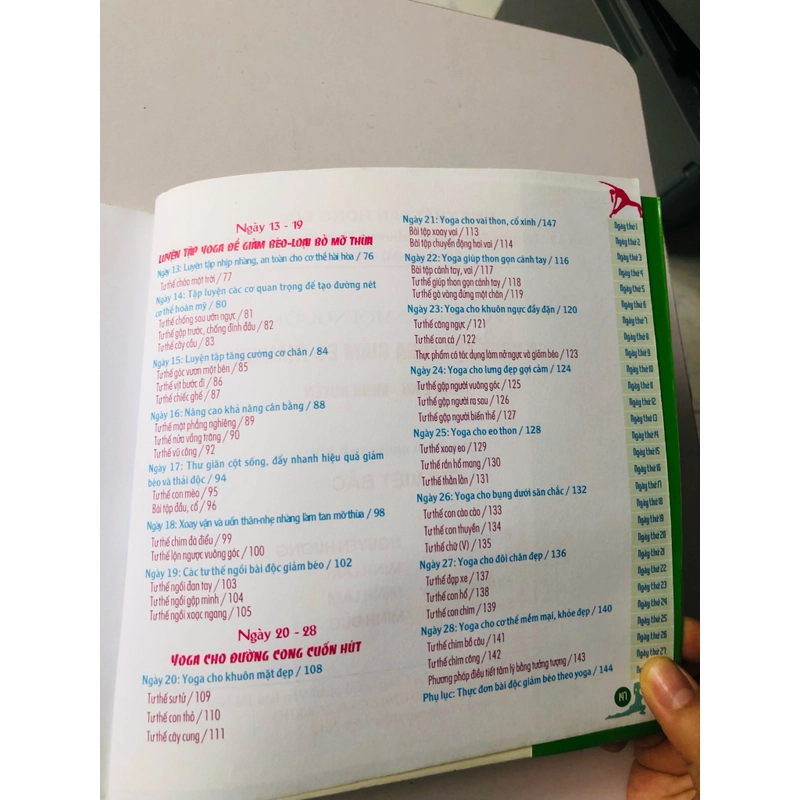 Ngày 13 - 19
LUYỆN TẬP YOGA ĐỂ GIẢM BÉO-LOẠI BỎ MỠ THỪA
Ngày 13: Luyện tập nhịp nhàng, an toàn cho cơ thể hài hòa / 76
Tư thế chào mặt trời / 77
Ngày 14: Tập luyện các cơ quan trọng để tạo đường nét
cơ thể hoàn mỹ / 80
Tư thế chống sau ưỡn ngực / 81
Tư thế gập trước, chổng đỉnh đầu / 82
Tư thế cây cầu / 83
Ngày 15: Luyện tập tăng cường cơ chân / 84
Tư thế góc vươn một bên / 85
Tư thế vịt bước đi / 86
Tư thế chiếc ghế / 87
Ngày 16: Nâng cao khả năng cân bằng / 88
Tư thế mặt phẳng nghiêng / 89
Tư thế nửa vầng trăng / 90
Tư thế vũ công / 92
Ngày 17: Thư giãn cột sống, đẩy nhanh hiệu quả giảm
béo và thải độc / 94
Tư thế con mèo / 95
Bài tập đầu, cổ / 96
Ngày 18: Xoay vặn và uốn thân-nhẹ nhàng làm tan mỡ thừa / 98
Tư thế chim đà điểu / 99
Tư thế lộn ngược vuông góc / 100
Ngày 19: Các tư thế ngồi bài độc giảm béo / 102
Tư thế ngồi đan tay / 103
Tư thế ngồi gập mình / 104
Tư thế ngồi xoạc ngang / 105
Ngày 20 - 28
YOGA CHO ĐƯỜNG CONG CUỐN HÚT
Ngày 20: Yoga cho khuôn mặt đẹp / 108
Tư thế sư tử / 109
Tư thế con thỏ / 110
Tư thế cây cung / 111
Ngày 21: Yoga cho vai thon, cổ xinh /147
Bài tập xoay vai / 113
Bài tập chuyển động hai vai / 114
Ngày 22: Yoga giúp thon gọn cánh tay / 116
Bài tập cánh tay, vai / 117
Tư thế giúp thon gọn cánh tay / 118
Tư thế gà vàng đứng một chân / 119
Ngày 23: Yoga cho khuôn ngực đầy đặn / 120
Tư thế căng ngực / 121
Tư thế con cá / 122
Thực phẩm có tác dụng làm nở ngực và giảm béo / 123
Ngày 24: Yoga cho lưng đẹp gợi cảm / 124
Tư thế gập người vuông góc / 125
Tư thế gập người ra sau / 126
Tư thế gập người biến thể / 127
Ngày 25: Yoga cho eo thon / 128
Tư thế xoay eo / 129
Tư thế rắn hổ mang / 130
Tư thế thằn lằn / 131
Ngày 26: Yoga cho bụng dưới săn chắc / 132
Tư thế con cào cào / 133
Tư thế con thuyền / 134
Tư thế chữ (V) / 135
Ngày 27: Yoga cho đôi chân đẹp / 136
Tư thế đạp xe / 137
Tư thế con hổ / 138
Tư thế con chim / 139
Ngày 28: Yoga cho cơ thể mềm mại, khỏe đẹp / 140
Tư thế chim bồ câu / 141
Tư thế chim công / 142
Phương pháp điều tiết tâm lý bằng tưởng tượng / 143
Phụ lục: Thực đơn bài độc giảm béo theo yoga / 144
Ngày thứ 1
Ngày thứ 2
Ngày thứ 3
Ngày thứ 4
Ngày thứ 5
Ngày thứ 6
Ngày thứ 7
Ngày thứ 8
Ngày thứ 9
Ngày thứ 10
Ngày thứ 11
Ngày thứ 12
Ngày thứ 13
Ngày thứ 14
Ngày thứ 15
Ngày thứ 16
Ngày thứ 17
Ngày thứ 18
Ngày thứ 19
Ngày thứ 20
Ngày thứ 21
Ngày thứ 22
Ngày thứ 23
Ngày thứ 24
Ngày thứ 25
Ngày thứ 26
Ngày thứ 27